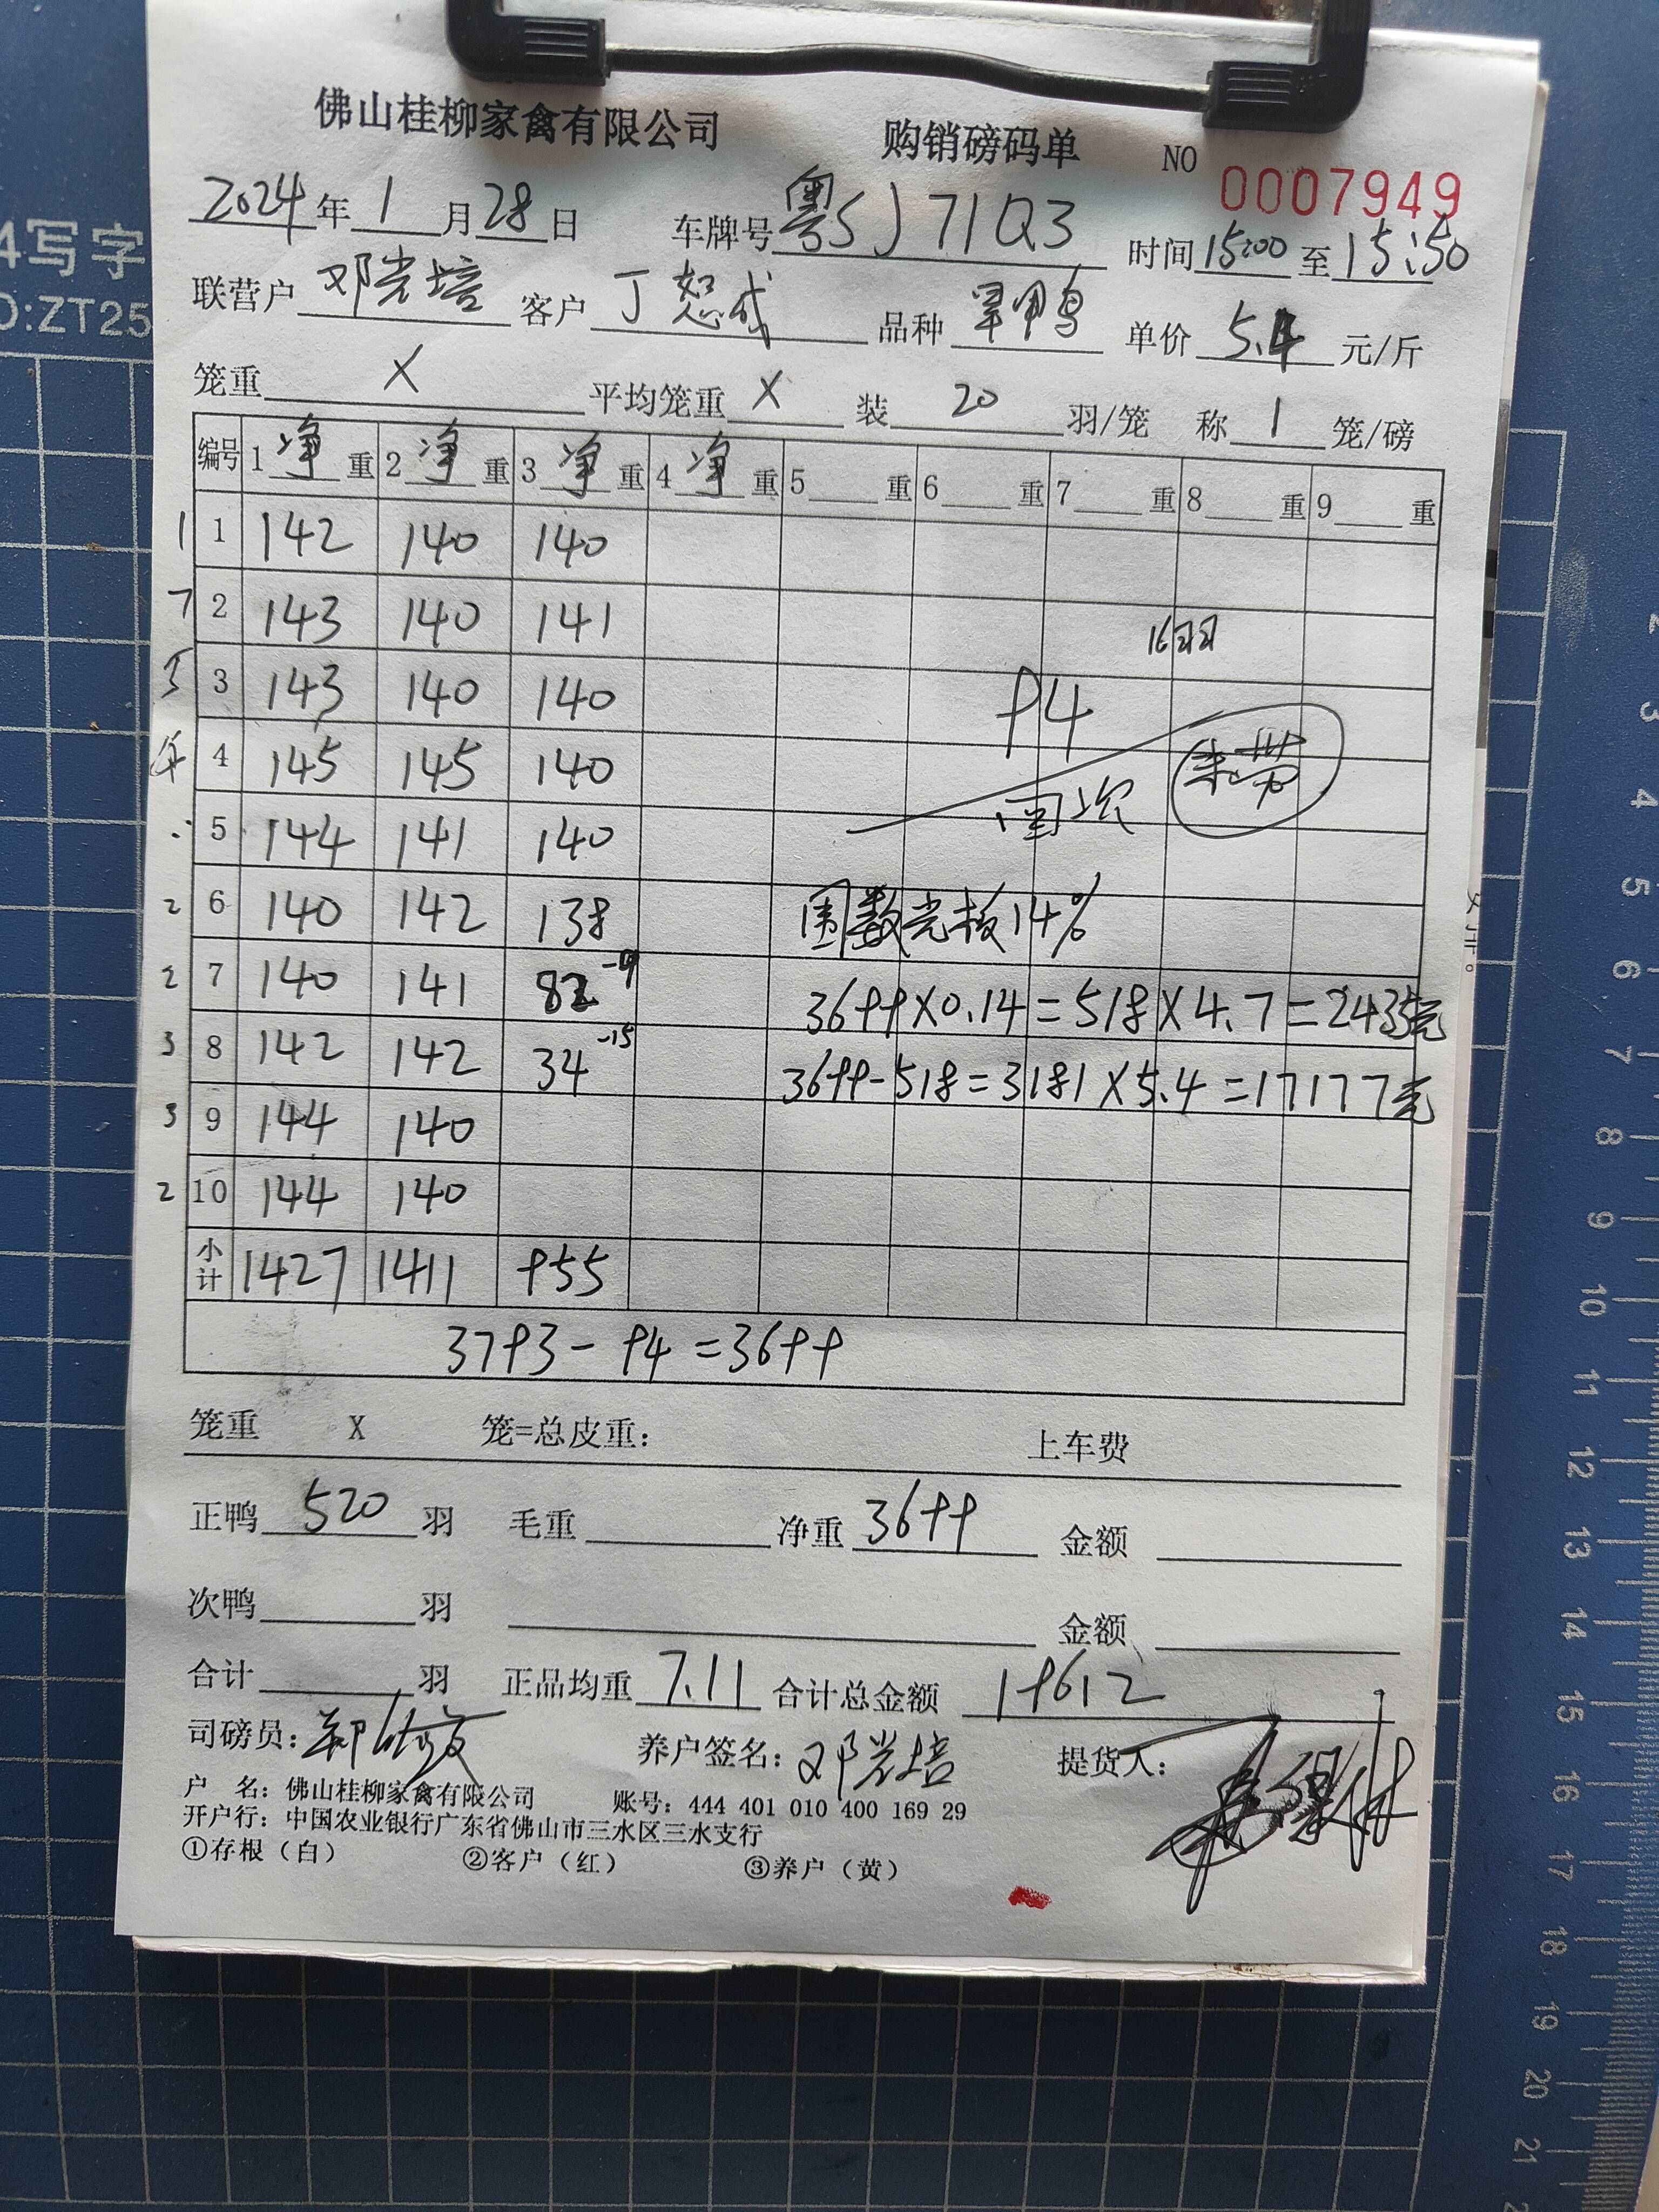 佛山桂柳家禽有限公司 购销磅码单 NO 0007949
2024年1月28日 车牌号粤SJ71Q3 时间15:00至15:50
联营户 邓光培 客户 丁恕成 品种 旱鸭 单价 5.4 元/斤
笼重 X 平均笼重 X 装 20 羽/笼 称 1 笼/磅
编号 1净重 2净重 3净重 4净重 5 重 6 重 7 重 8 重 9 重
1 1 142 140 140
7 2 143 140 141 16羽
5 3 143 140 140 94
4 4 145 145 140
5 144 141 140
2 6 140 142 138 光板14%
2 7 140 141 82 3699X0.14=518X4.7=2435元
3 8 142 142 34-15 3699-518=3181X5.4=17177元
3 9 144 140
2 10 144 140
小计 1427 1411 955
3793-94=3699
笼重 X 笼=总皮重: 上车费
正鸭 520 羽 毛重 净重 3699 金额
次鸭 羽 金额
合计 羽 正品均重 7.11 合计总金额 19612
司磅员: 养户签名: 邓光培 提货人:
户 名: 佛山桂柳家禽有限公司 账号: 444 401 010 400 169 29
开户行: 中国农业银行广东省佛山市三水区三水支行
①存根(白) ②客户(红) ③养户(黄)
4写字
O:ZT25
2
3
4
5
6
7
8
9
10
11
12
13
14
15
16
17
18
19
20
21